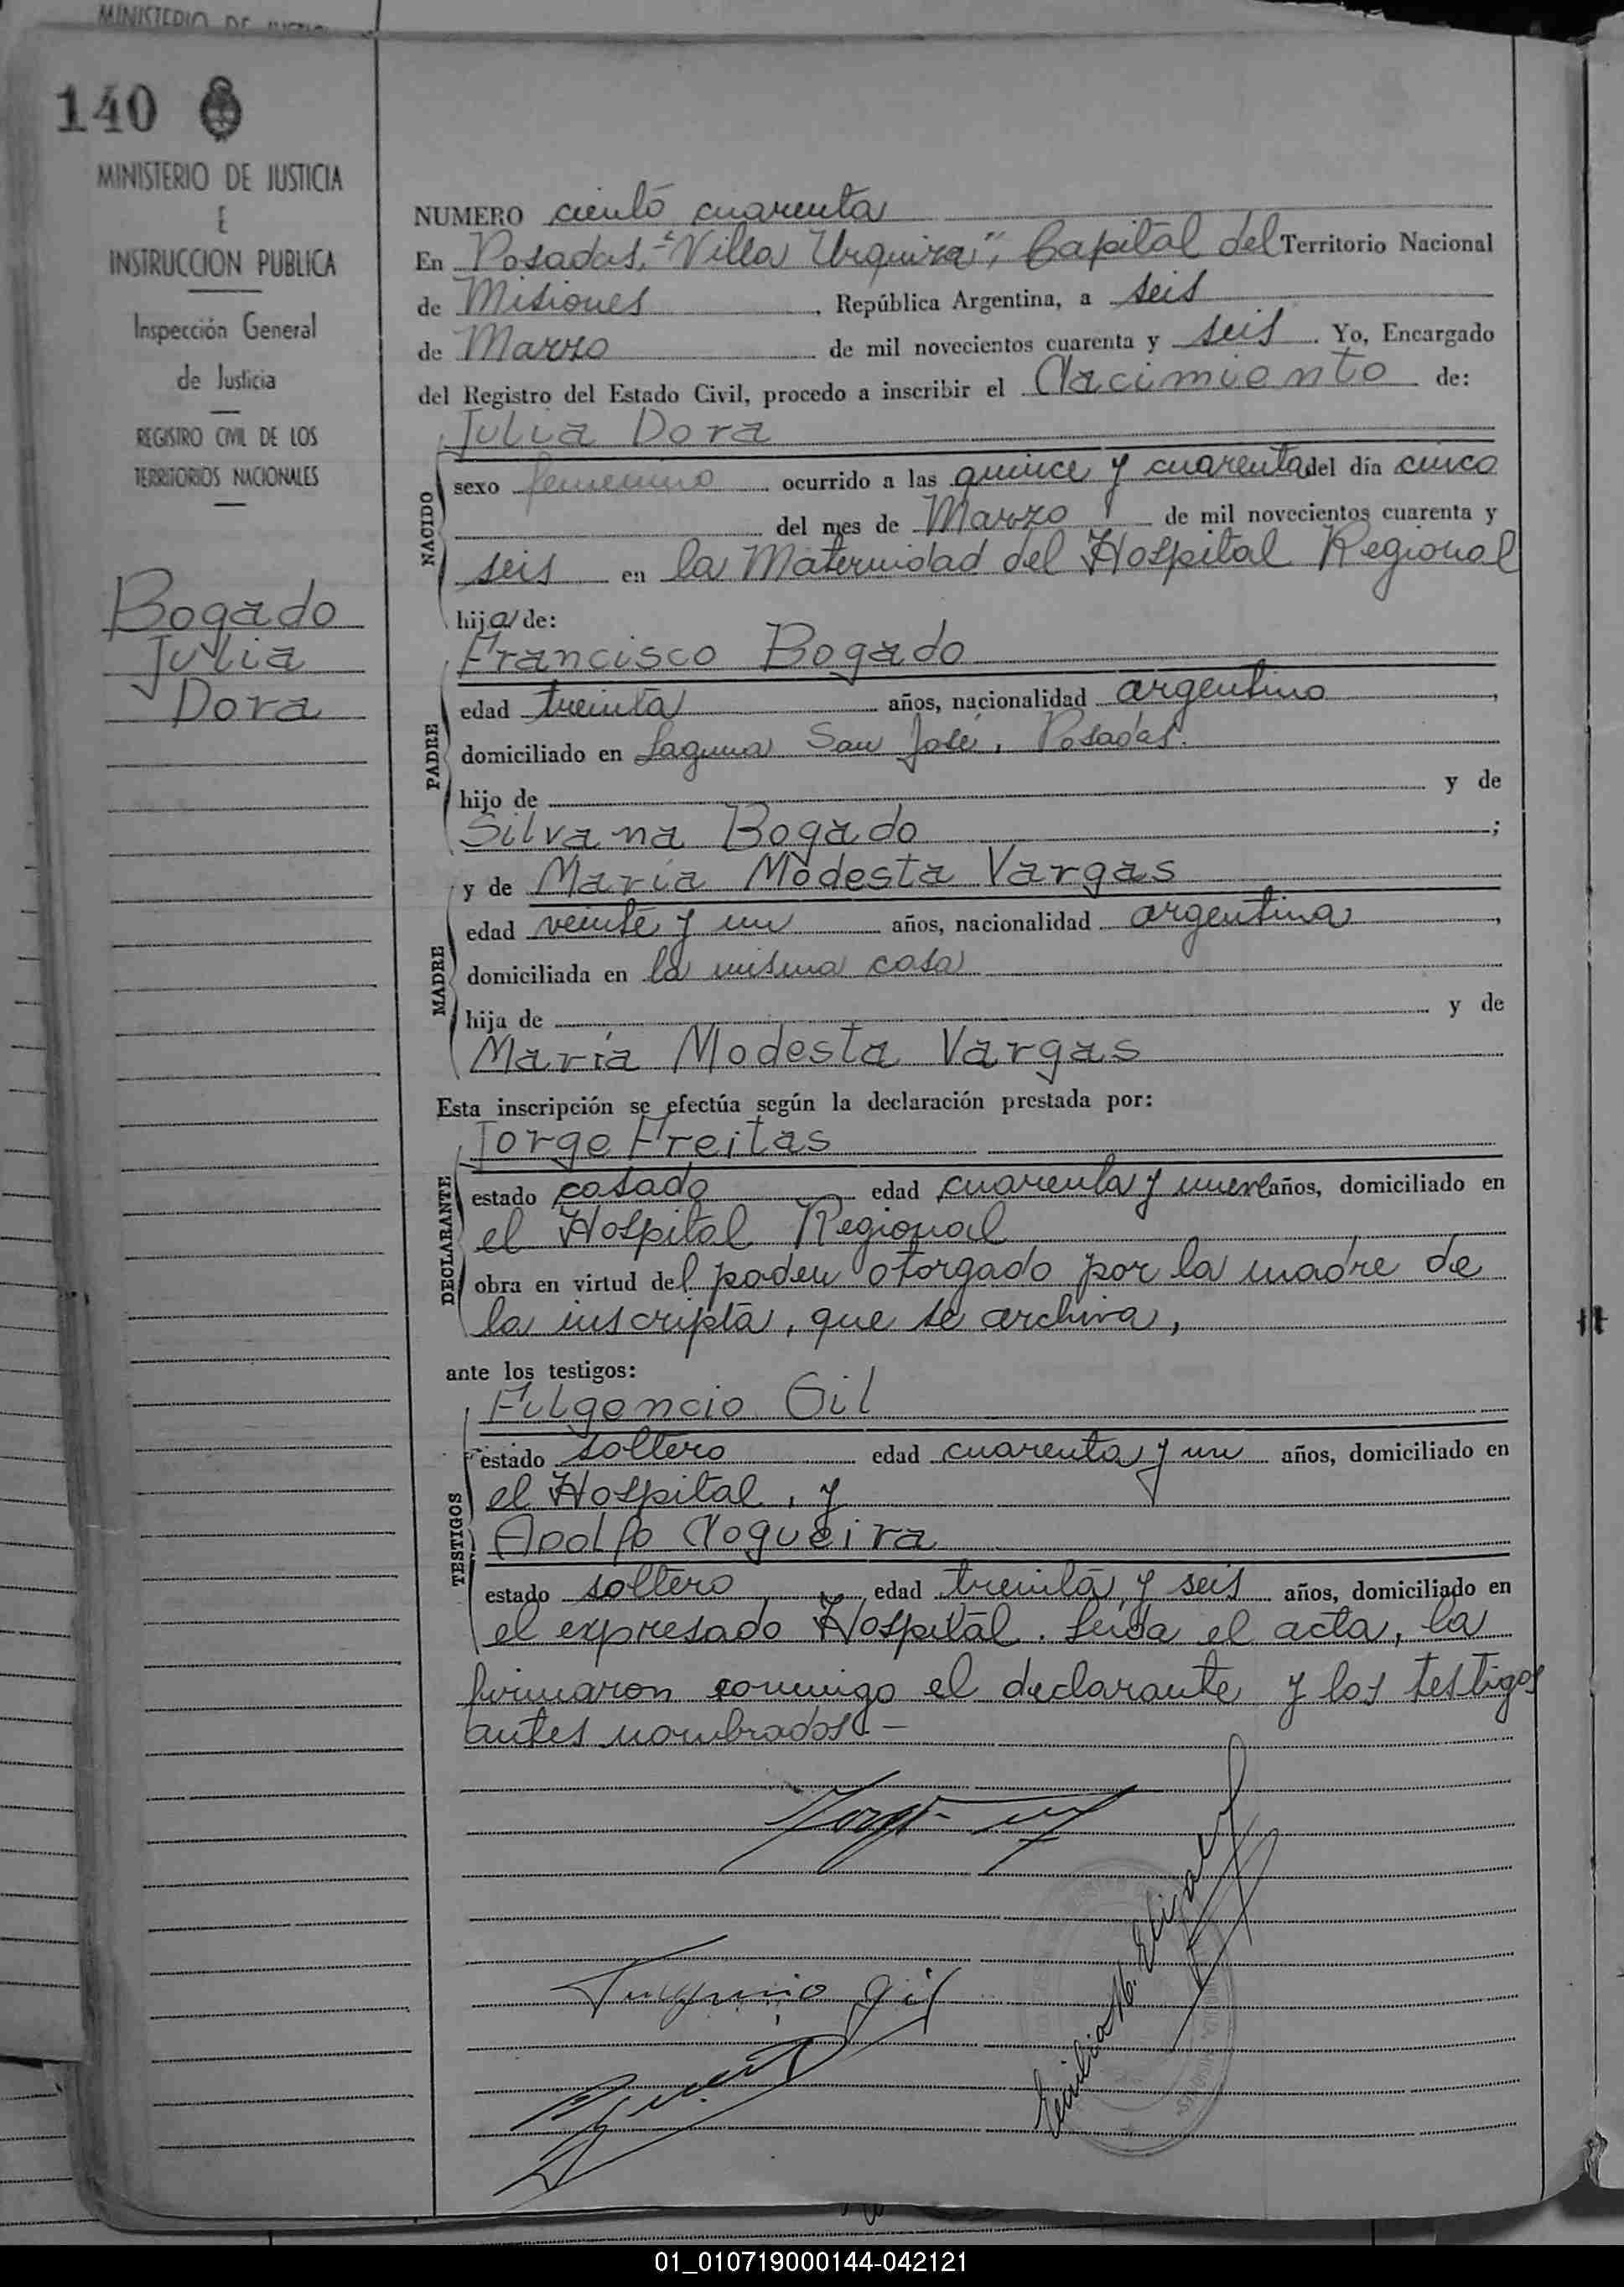 MINISTERIO DE
140
MINISTERIO DE JUSTICIA
E
INSTRUCCION PUBLICA
Inspección General
de Justicia
REGISTRO CIVIL DE LOS
TERRITORIOS NACIONALES
Bogado
Julia
Dora
NUMERO ciento cuarenta
En Posadas, "Villa Urquiza", Capital del Territorio Nacional
de Misiones, República Argentina, a seis
de Marzo de mil novecientos cuarenta y seis. Yo, Encargado
del Registro del Estado Civil, procedo a inscribir el Nacimiento de:
Julia Dora
NACIDO
sexo femenino ocurrido a las quince y cuarenta del día cinco
del mes de Marzo de mil novecientos cuarenta y
seis en la Maternidad del Hospital Regional
hija de:
PADRE
Francisco Bogado
edad treinta años, nacionalidad argentino,
domiciliado en Laguna San José, Posadas.
hijo de y de
Silvana Bogado;
MADRE
y de María Modesta Vargas
edad veinte y un años, nacionalidad argentina,
domiciliada en la misma casa
hija de y de
María Modesta Vargas
Esta inscripción se efectúa según la declaración prestada por:
DECLARANTE
Jorge Freitas
estado casado edad cuarenta y nueve años, domiciliado en
el Hospital Regional
obra en virtud del poder otorgado por la madre de
la inscripta, que se archiva,
ante los testigos:
TESTIGOS
Fulgencio Gil
estado soltero edad cuarenta y un años, domiciliado en
el Hospital, y
Adolfo Nogueira
estado soltero edad treinta y seis años, domiciliado en
el expresado Hospital. Leída el acta, la
firmaron conmigo el declarante y los testigos
antes nombrados.-
Gil
01_010719000144-042121